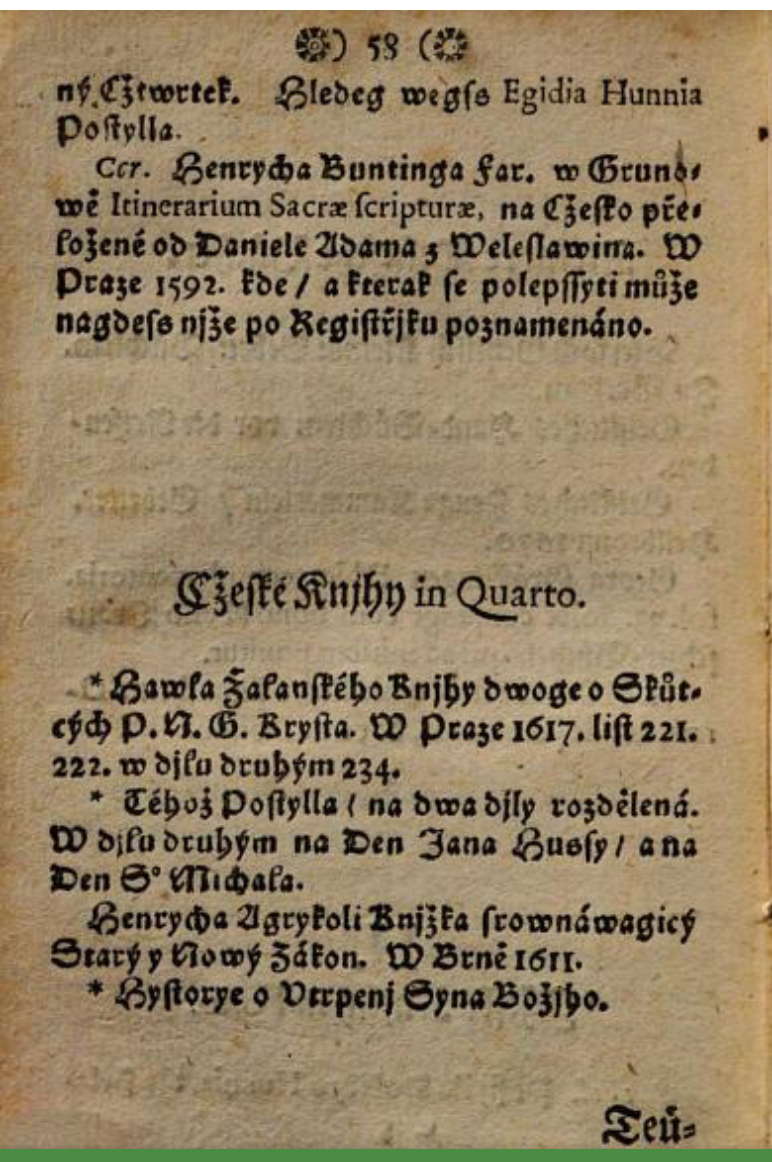 ❁) 58 (❁
ný Cżtwrtek. Hledeg wegſs Egidia Hunnia
Poſtylla.
Ccr. Henrycha Buntinga Far. w Grund⸗
wě Itinerarium Sacræ ſcripturæ, na Cżeſko pře⸗
ložené od Daniele Adama z Weleſlawina. W
Praze 1592. kde / a kterak ſe polepſſyti může
nagdeſs njże po Regiſtřjku poznamenáno.
Cżeſké Knjhy in Quarto.
* Hawla Žalanſkého Knjhy dwoge o Skůt⸗
cých P. N. G. Kryſta. W Praze 1617. liſt 221.
222. w djlu druhým 234.
* Téhož Poſtylla / na dwa djly rozdělená.
W djlu druhým na Den Jana Husſy / a na
Den S° Michala.
Henrycha Agrykoli Knjžka ſrownáwagicý
Starý y Nowý Zákon. W Brně 1611.
* Hyſtorye o Vtrpenj Syna Božjho.
Teů⸗